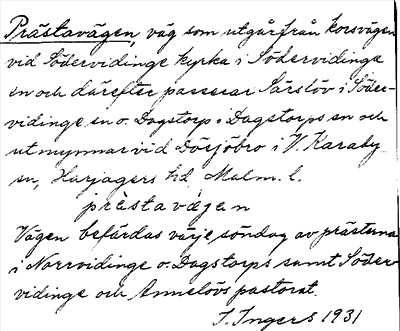 Prästavägen, väg som utgår från korsvägen
vid Södervidinge kyrka i Södervidinge
sn och därefter passerar Särslöv i Söder-
vidinge sn o. Dagstorp i Dagstorps sn och
utmynnar vid Dösjöbro i V. Karaby
sn, Harjagers hd. Malm. l.
prästavägen
Vägen befárdas varje söndag av prästerna
i Norrvidinge o. Dagstorps samt Söder-
vidinge och Annelövs pastorat.
I. Ingers 1931